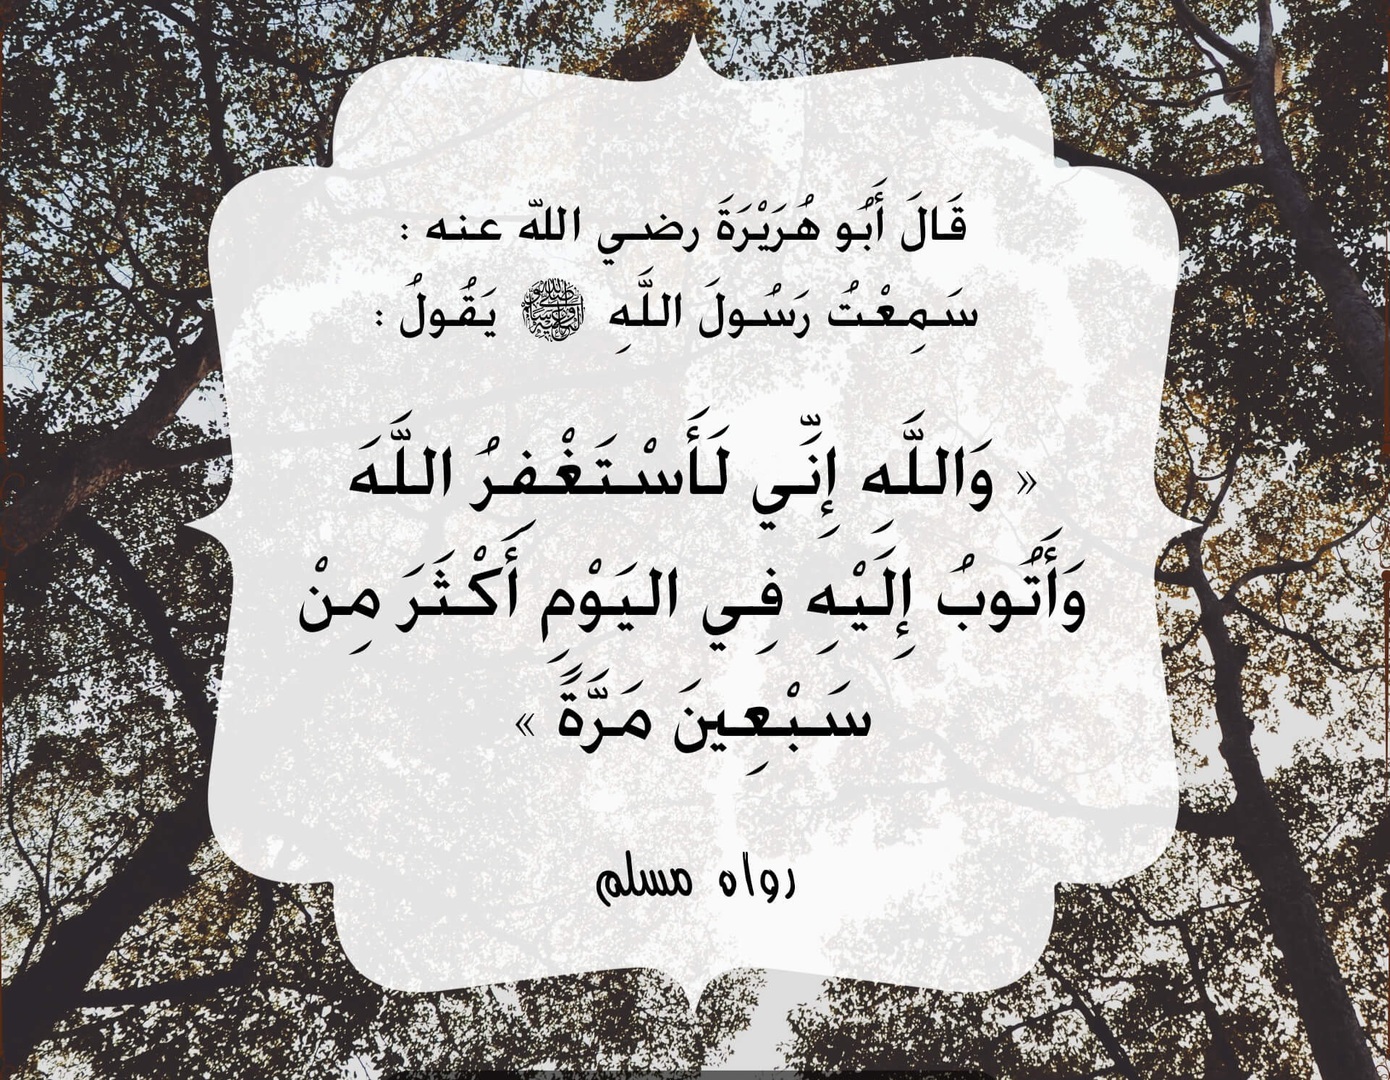 قَالَ أَبُو هُرَيْرَةَ رضي اللّه عنه :
سَمِعْتُ رَسُولَ اللَّهِ ﷺ يَقُولُ :
« وَاللَّهِ إِنِّي لَأَسْتَغْفِرُ اللَّهَ
وَأَتُوبُ إِلَيْهِ فِي اليَوْمِ أَكْثَرَ مِنْ
سَبْعِينَ مَرَّةً »
رواه مسلم